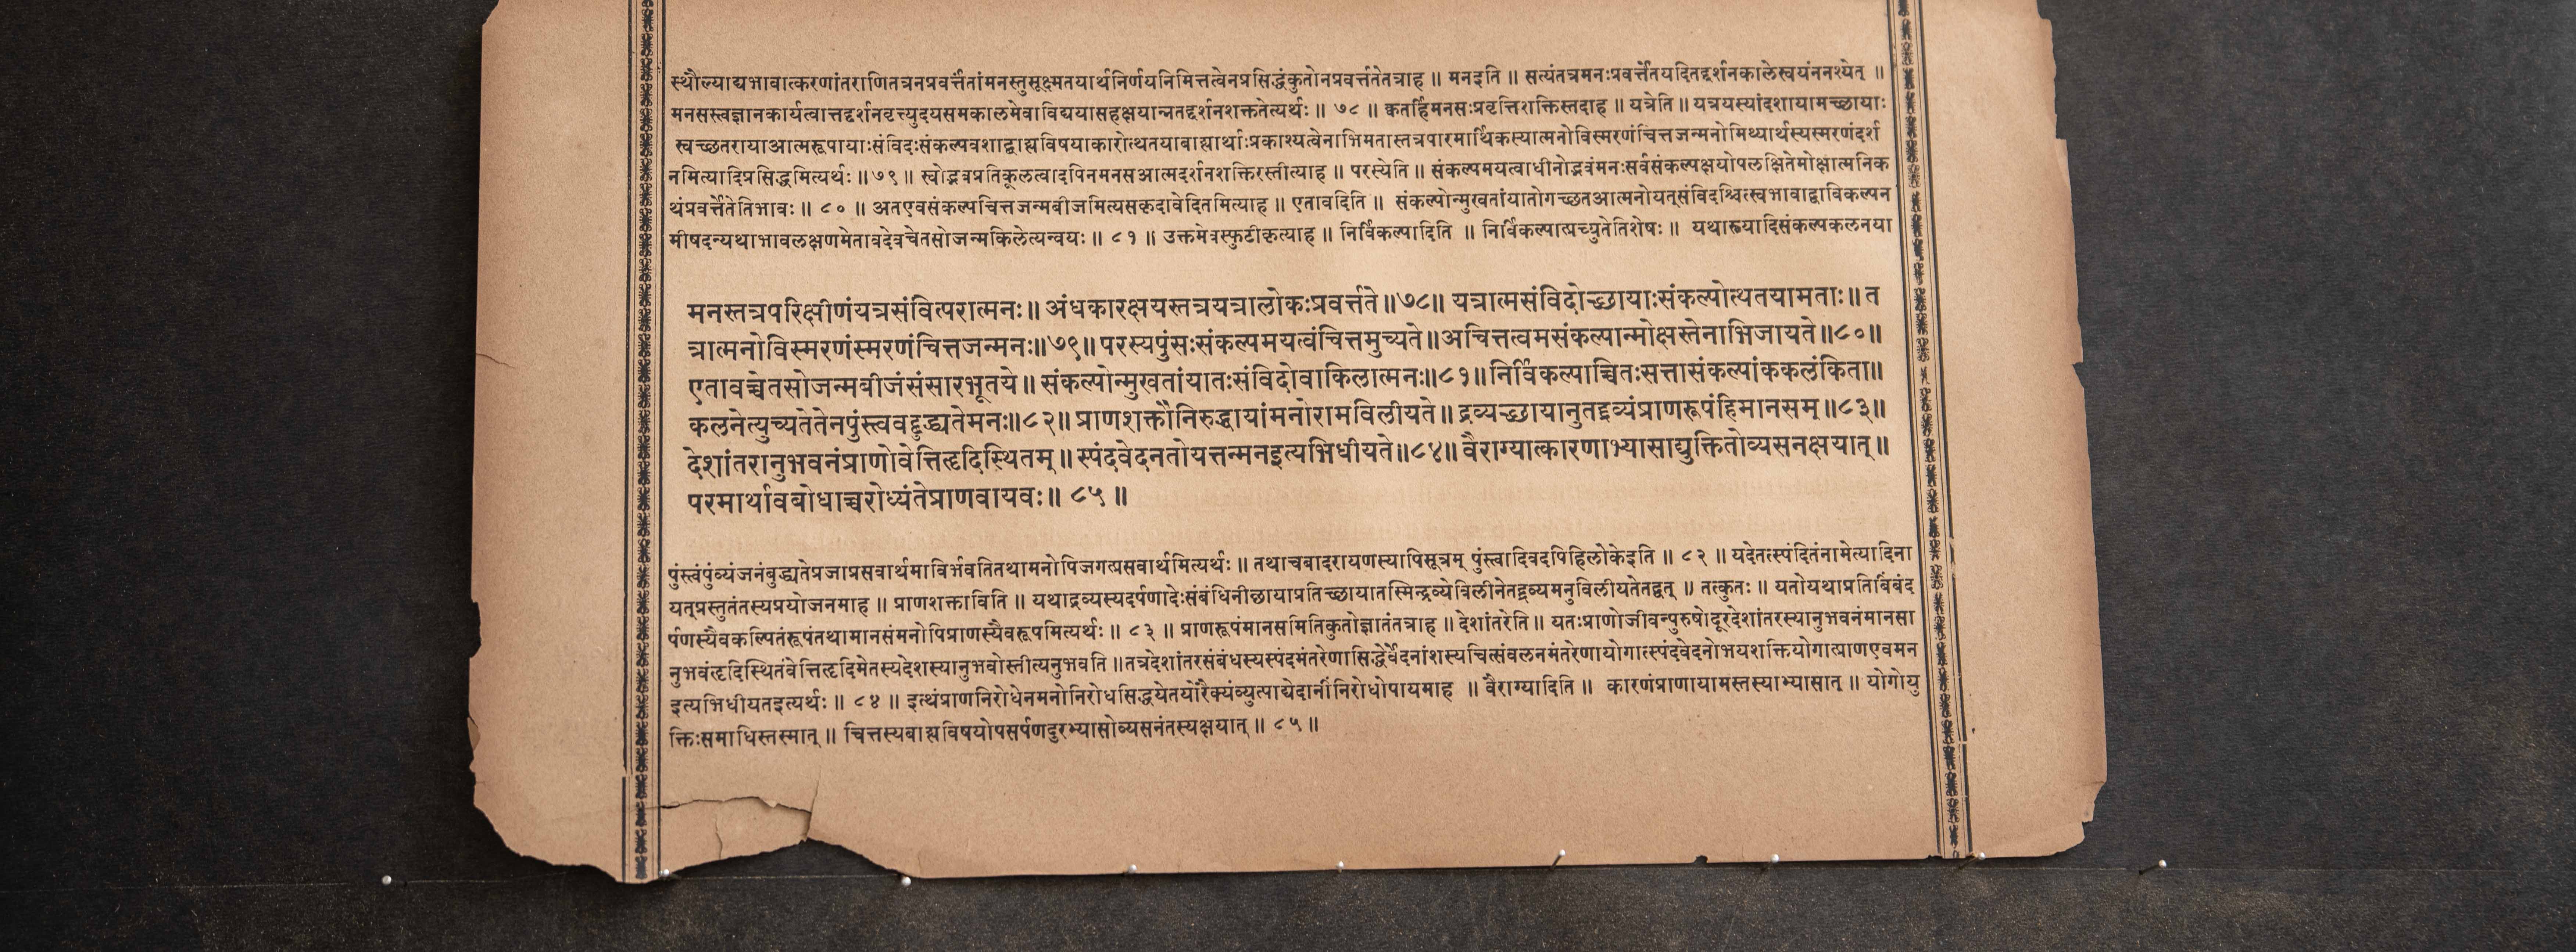 स्थौल्याद्यभावात्करणांतराणितत्रनप्रवर्त्तेतांमनस्तुसूक्ष्मतयार्थनिर्णयनिमित्तत्वेनप्रसिद्धंकुतोनप्रवर्त्ततेतत्राह ॥ मनइति ॥ सत्यंतत्रमनःप्रवर्त्तेतयदितद्दर्शनकालेस्वयंननश्येत् ॥
मनसस्त्वज्ञानकार्यत्वात्तद्दर्शनवृत्त्युदयसमकालमेवाविद्ययासहक्षयान्नतद्दर्शनशक्ततेत्यर्थः ॥ ७८ ॥ क्वतर्हिमनसःप्रवृत्तिशक्तिस्तदाह ॥ यत्रेति ॥ यत्रयस्यांदशायामच्छायाः
स्वच्छतरायाआत्मरूपायाःसंविदःसंकल्पवशाद्बाह्यविषयाकारोत्थतयाबाह्यार्थाःप्रकाश्यत्वेनाभिमतास्तत्रपारमार्थिकस्यात्मनोविस्मरणंचित्तजन्मनोमिथ्यार्थस्यस्मरणंदर्श
नमित्यादिप्रसिद्धमित्यर्थः ॥ ७९ ॥ स्वोद्भवप्रतिकूलत्वादपिनमनसआत्मदर्शनशक्तिरस्तीत्याह ॥ परस्येति ॥ संकल्पमयत्वाधीनोद्भवंमनःसर्वसंकल्पक्षयोपलक्षितेमोक्षात्मनिक
थंप्रवर्त्तेतेतिभावः ॥ ८० ॥ अतएवसंकल्पचित्तजन्मबीजमित्यसकृदावेदितमित्याह ॥ एतावदिति ॥ संकल्पोन्मुखतांयातोगच्छतआत्मनोयत्संविदश्चित्स्वभावाद्वाविकल्पन
मीषदन्यथाभावलक्षणमेतावदेवचेतसोजन्मकिलेत्यन्वयः ॥ ८१ ॥ उक्तमेवस्फुटीकृत्याह ॥ निर्विकल्पादिति ॥ निर्विकल्पात्प्रच्युतेतिशेषः ॥ यथास्त्र्यादिसंकल्पकलनया
मनस्तत्रपरिक्षीणंयत्रसंवित्परात्मनः ॥ अंधकारक्षयस्तत्रयत्रालोकःप्रवर्त्तते ॥ ७८ ॥ यत्रात्मसंविदोच्छायाःसंकल्पोत्थतयामताः ॥ त
त्रात्मनोविस्मरणंस्मरणंचित्तजन्मनः ॥ ७९ ॥ परस्यपुंसःसंकल्पमयत्वंचित्तमुच्यते ॥ अचित्तत्वमसंकल्पान्मोक्षस्तेनाभिजायते ॥ ८० ॥
एतावच्चेतसोजन्मबीजंसंसारभूतये ॥ संकल्पोन्मुखतांयातःसंविदोवाकिलात्मनः ॥ ८१ ॥ निर्विकल्पाच्चितःसत्तासंकल्पांककलंकिता ॥
कलनेत्युच्यतेतेनपुंस्त्ववद्बुद्ध्यतेमनः ॥ ८२ ॥ प्राणशक्तौनिरुद्धायांमनोरामविलीयते ॥ द्रव्यच्छायानुतद्द्रव्यंप्राणरूपंहिमानसम् ॥ ८३ ॥
देशांतरानुभवनंप्राणोवेत्तिहृदिस्थितम् ॥ स्पंदवेदनतोयत्तन्मनइत्यभिधीयते ॥ ८४ ॥ वैराग्यात्कारणाभ्यासाद्युक्तितोव्यसनक्षयात् ॥
परमार्थावबोधाच्चरोध्यंतेप्राणवायवः ॥ ८५ ॥
पुंस्त्वंपुंव्यंजनंबुद्ध्यतेप्रजाप्रसवार्थमाविर्भवतितथामनोपिजगत्प्रसवार्थमित्यर्थः ॥ तथाचबादरायणस्यापिसूत्रम् पुंस्त्वादिवदपिहिलोकेइति ॥ ८२ ॥ यदेतत्स्पंदितंनामेत्यादिना
यत्प्रस्तुतंतस्यप्रयोजनमाह ॥ प्राणशक्ताविति ॥ यथाद्रव्यस्यदर्पणादेःसंबंधिनीछायाप्रतिच्छायातस्मिन्द्रव्येविलीनेतद्द्रव्यमनुविलीयतेतद्वत् ॥ तत्कुतः ॥ यतोयथाप्रतिबिंबंद
र्पणस्यैवकल्पितंरूपंतथामानसंमनोपिप्राणस्यैवरूपमित्यर्थः ॥ ८३ ॥ प्राणरूपंमानसमितिकुतोज्ञातंतत्राह ॥ देशांतरेति ॥ यतःप्राणोजीवन्पुरुषोदूरदेशांतरस्यानुभवनंमानसा
नुभवंहृदिस्थितंवेत्तिहृदिमेतस्यदेशस्यानुभवोस्तीत्यनुभवति ॥ तत्रदेशांतरसंबंधस्यस्पंदमंतरेणासिद्धेर्वेदनांशस्यचित्संवलनमंतरेणायोगात्स्पंदवेदनोभयशक्तियोगात्प्राणएवमन
इत्यभिधीयतइत्यर्थः ॥ ८४ ॥ इत्थंप्राणनिरोधेनमनोनिरोधसिद्धयेतयोरैक्यंव्युत्पाद्येदानींनिरोधोपायमाह ॥ वैराग्यादिति ॥ कारणंप्राणायामस्तस्याभ्यासात् ॥ योगोयु
क्तिःसमाधिस्तस्मात् ॥ चित्तस्यबाह्यविषयोपसर्पणदुरभ्यासोव्यसनंतस्यक्षयात् ॥ ८५ ॥